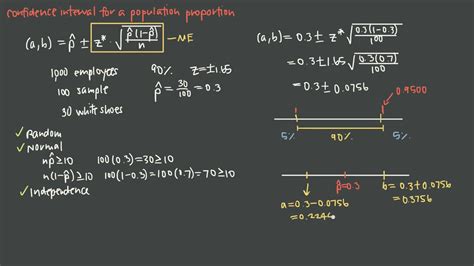 confidence interval for a population proportion
(a,b) = p̂ ± z* √(p̂(1-p̂)/n) — ME
1,000 employees 90% z=±1.65
100 sample p̂ = 30/100 = 0.3
30 white shoes
✓ Random
✓ Normal
np̂ ≥ 10 100(0.3) = 30 ≥ 10
n(1-p̂) ≥ 10 100(1-0.3) = 100(0.7) = 70 ≥ 10
✓ Independence
(a,b) = 0.3 ± z* √(0.3(1-0.3)/100)
= 0.3 ± 1.65 √(0.3(0.7)/100)
= 0.3 ± 0.0756
0.9500
5% 90% 5%
p̂=0.3 b = 0.3 + 0.0756
= 0.3756
a = 0.3 - 0.0756
= 0.2244